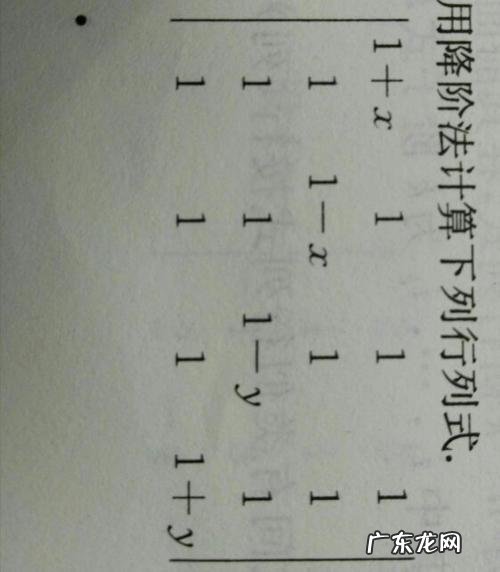 用降阶法计算下列行列式.
1+x 1 1 1
1 1-x 1 1
1 1 1-y 1
1 1 1 1+y
广东龙网